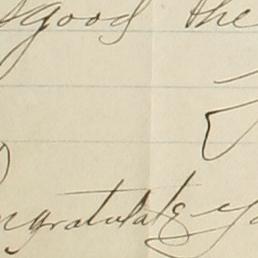 good the
ongratulate yo